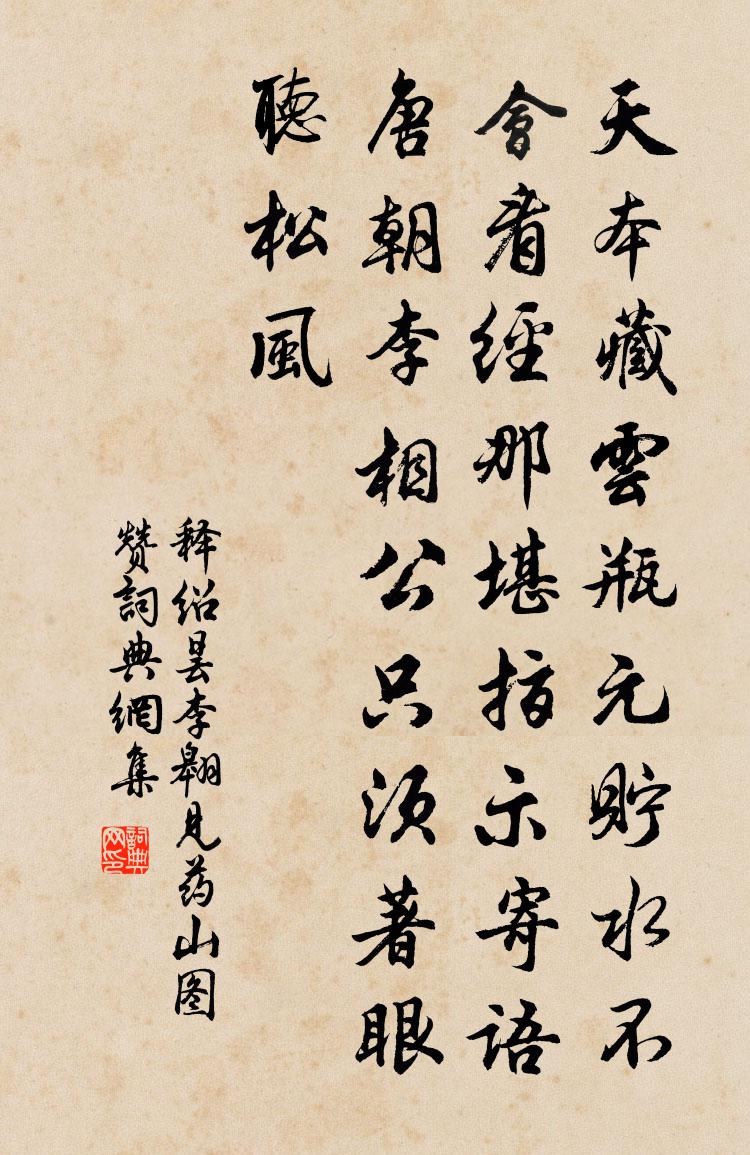 天本藏雲瓶元貯水不
會看經那堪指示寄語
唐朝李相公只須著眼
聽松風
释绍昙李翱见药山图
赞詞典網集
詞典网印